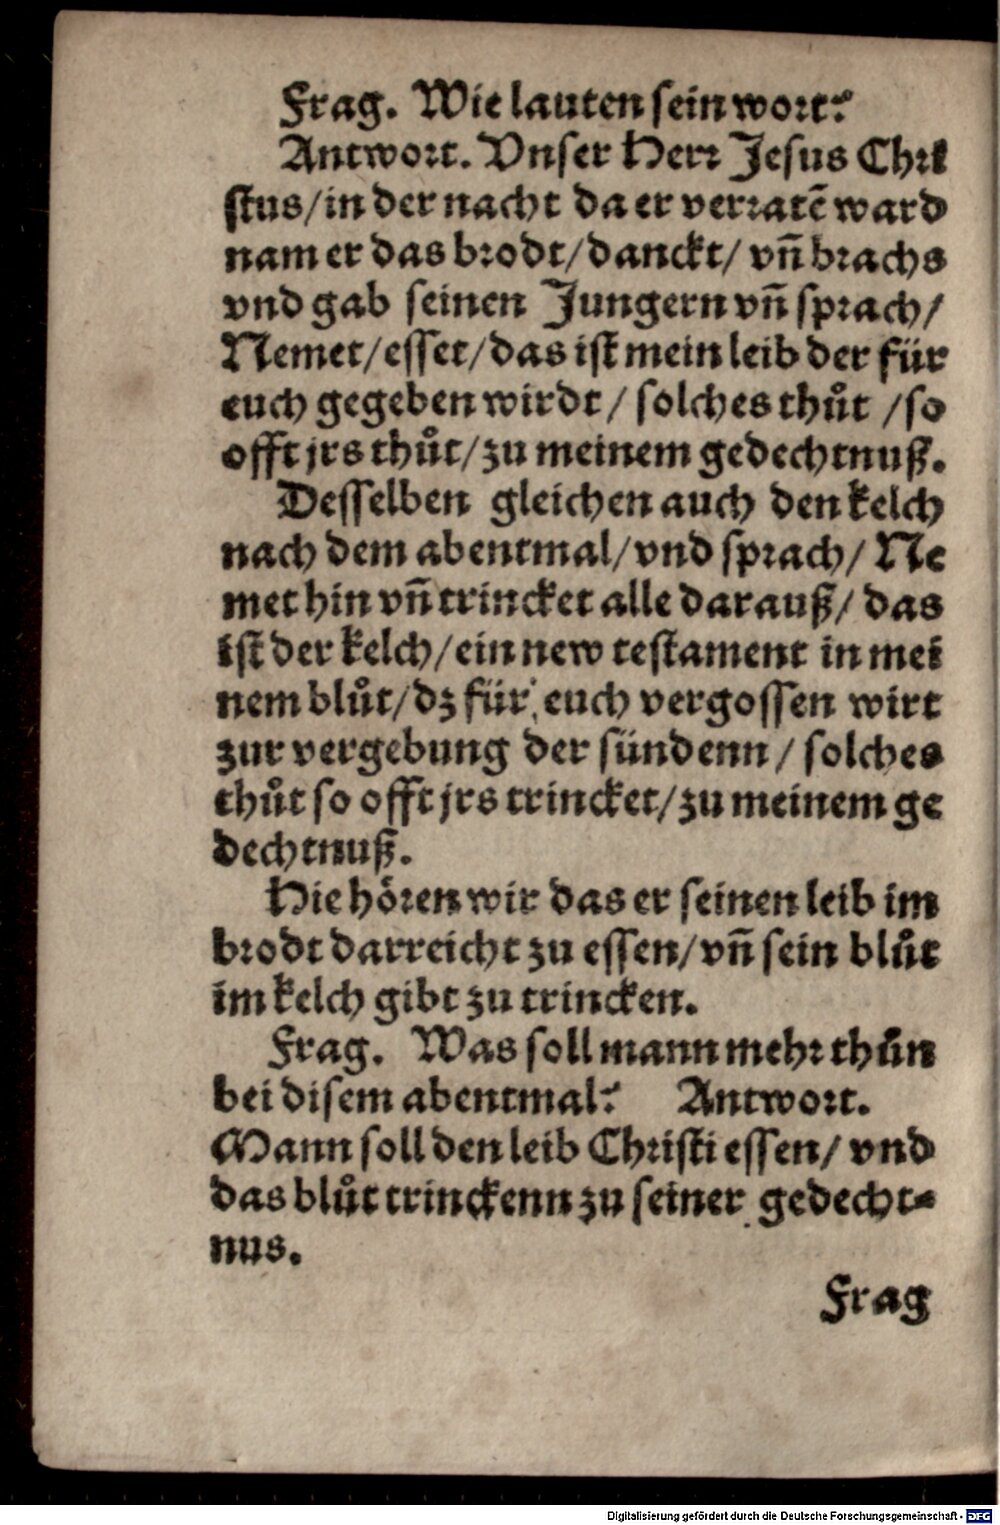 Frag. Wie lauten sein wort?
Antwort. Vnser Herr Jesus Chri
stus/in der nacht da er verratẽ ward
nam er das brodt/danckt/ vñ brachs
vnd gab seinen Jungern vñ sprach/
Nemet/esset/das ist mein leib der für
euch gegeben wirdt / solches thůt /so
offt jrs thůt/zu meinem gedechtnuß.
Desselben gleichen auch den kelch
nach dem abentmal/vnd sprach/ Ne
met hin vñ trincket alle darauß/ das
ist der kelch/ein new testament in mei
nem blůt/dz für euch vergossen wirt
zur vergebung der sündenn / solches
thůt so offt jrs trincket/zu meinem ge
dechtnuß.
Hie hören wir das er seinen leib im
brodt darreicht zu essen/vñ sein blůt
im kelch gibt zu trincken.
Frag. Was soll mann mehr thůn
bei disem abentmal? Antwort.
Mann soll den leib Christi essen/ vnd
das blůt trinckenn zu seiner gedecht=
nus.
Frag
Digitalisierung gefördert durch die Deutsche Forschungsgemeinschaft - DFG